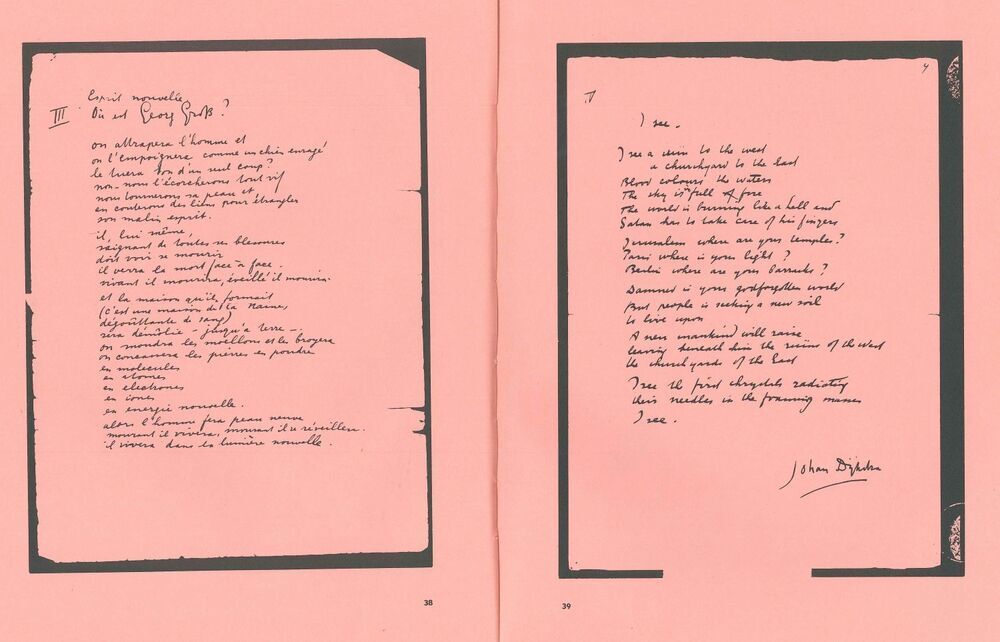 Esprit nouvelle
III Où est Georg Groß?
on attrapera l'homme et
on l'empoignera comme un chien enragé
le tuera d'un seul coup?
non - nous l'écorcherons tout vif
nous tournerons sa peau et
en couterons des liens pour étrangler
son malin esprit.
il, lui même,
saignant de toutes ses blessures
doit voir se mourir
il verra la mort face à face.
vivant il mourira, éveillé il mourira.
et la maison qu'il formait
(c'est une maison de la Haine,
dégoûttante de sang)
sera démolie - jusqu'à terre -.
on moudra les moëllons et les broyera
on concassera les pierres en poudre
en molecules
en atomes
en electrones
en iones
en energie nouvelle.
alors l'homme fera peau neuve
mourant il vivera, mourant il se réveillera.
il vivera dans la lumière nouvelle.
38
IV
4
I see.
I see a ruin to the west
a churchyard to the East
Blood colours the waters
The sky is full of fire
The world is burning like a hell and
Satan has to take care of his fingers
Jerusalem where are your temples?
Paris where is your light?
Berlin where are your barracks?
Damned is your godforgotten world
But people is seeking a new soil
to live upon
A new mankind will raise
leaving beneath him the ruins of the West
the churchyards of the East
I see the first chrystals radiating
their needles in the foaming masses
I see.
Johan Dijkstra
39